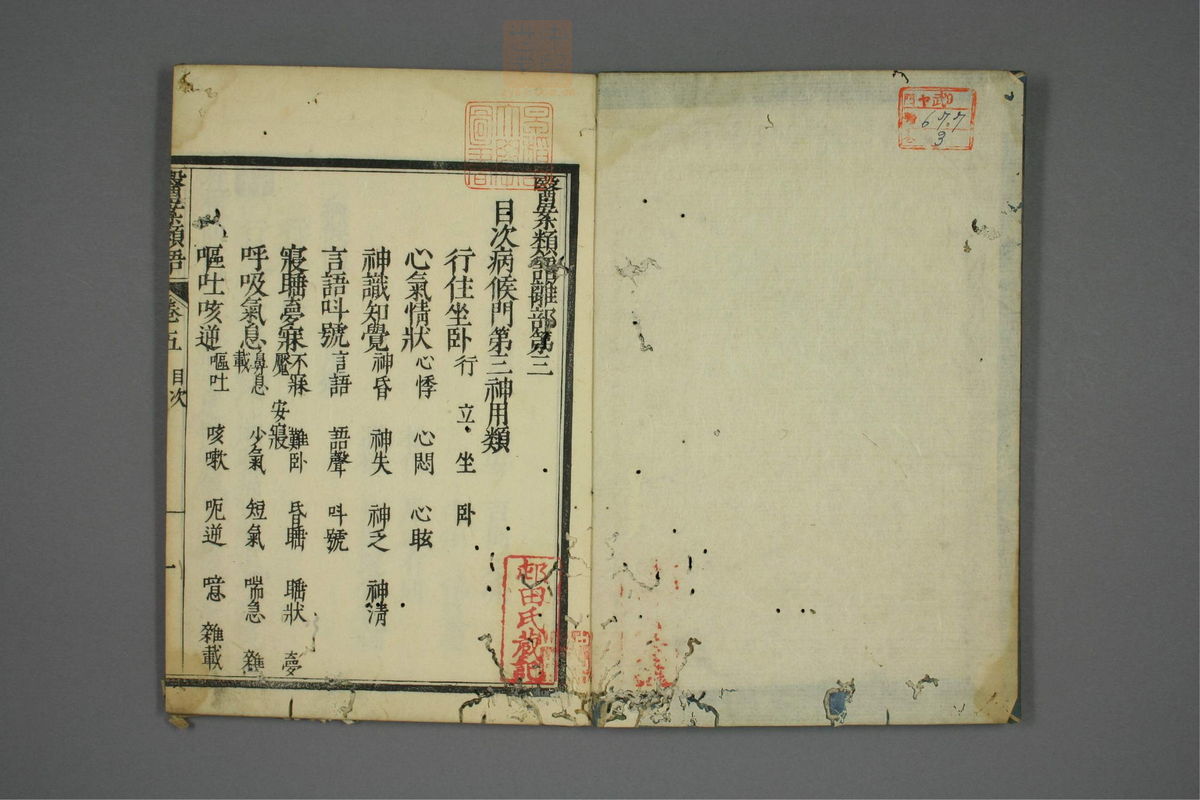 677
3
醫案類語雜部第三
目次病候門第三神用類
行住坐卧 行 立 坐 卧
心氣情狀 心悸 心悶 心眩
神識知覺 神昏 神失 神乏 神淸
言語呌號 言語 語聲 呌號
寢聃夢寐 不寐 難卧 昏聃 聃狀 夢
魘 安寢
呼吸氣息 鼻息 少氣 短氣 喘急 雜
載
嘔吐咳逆 嘔吐 咳嗽 呃逆 噫 雜載
醫案類語 卷五 目次 一
邨田氏藏記